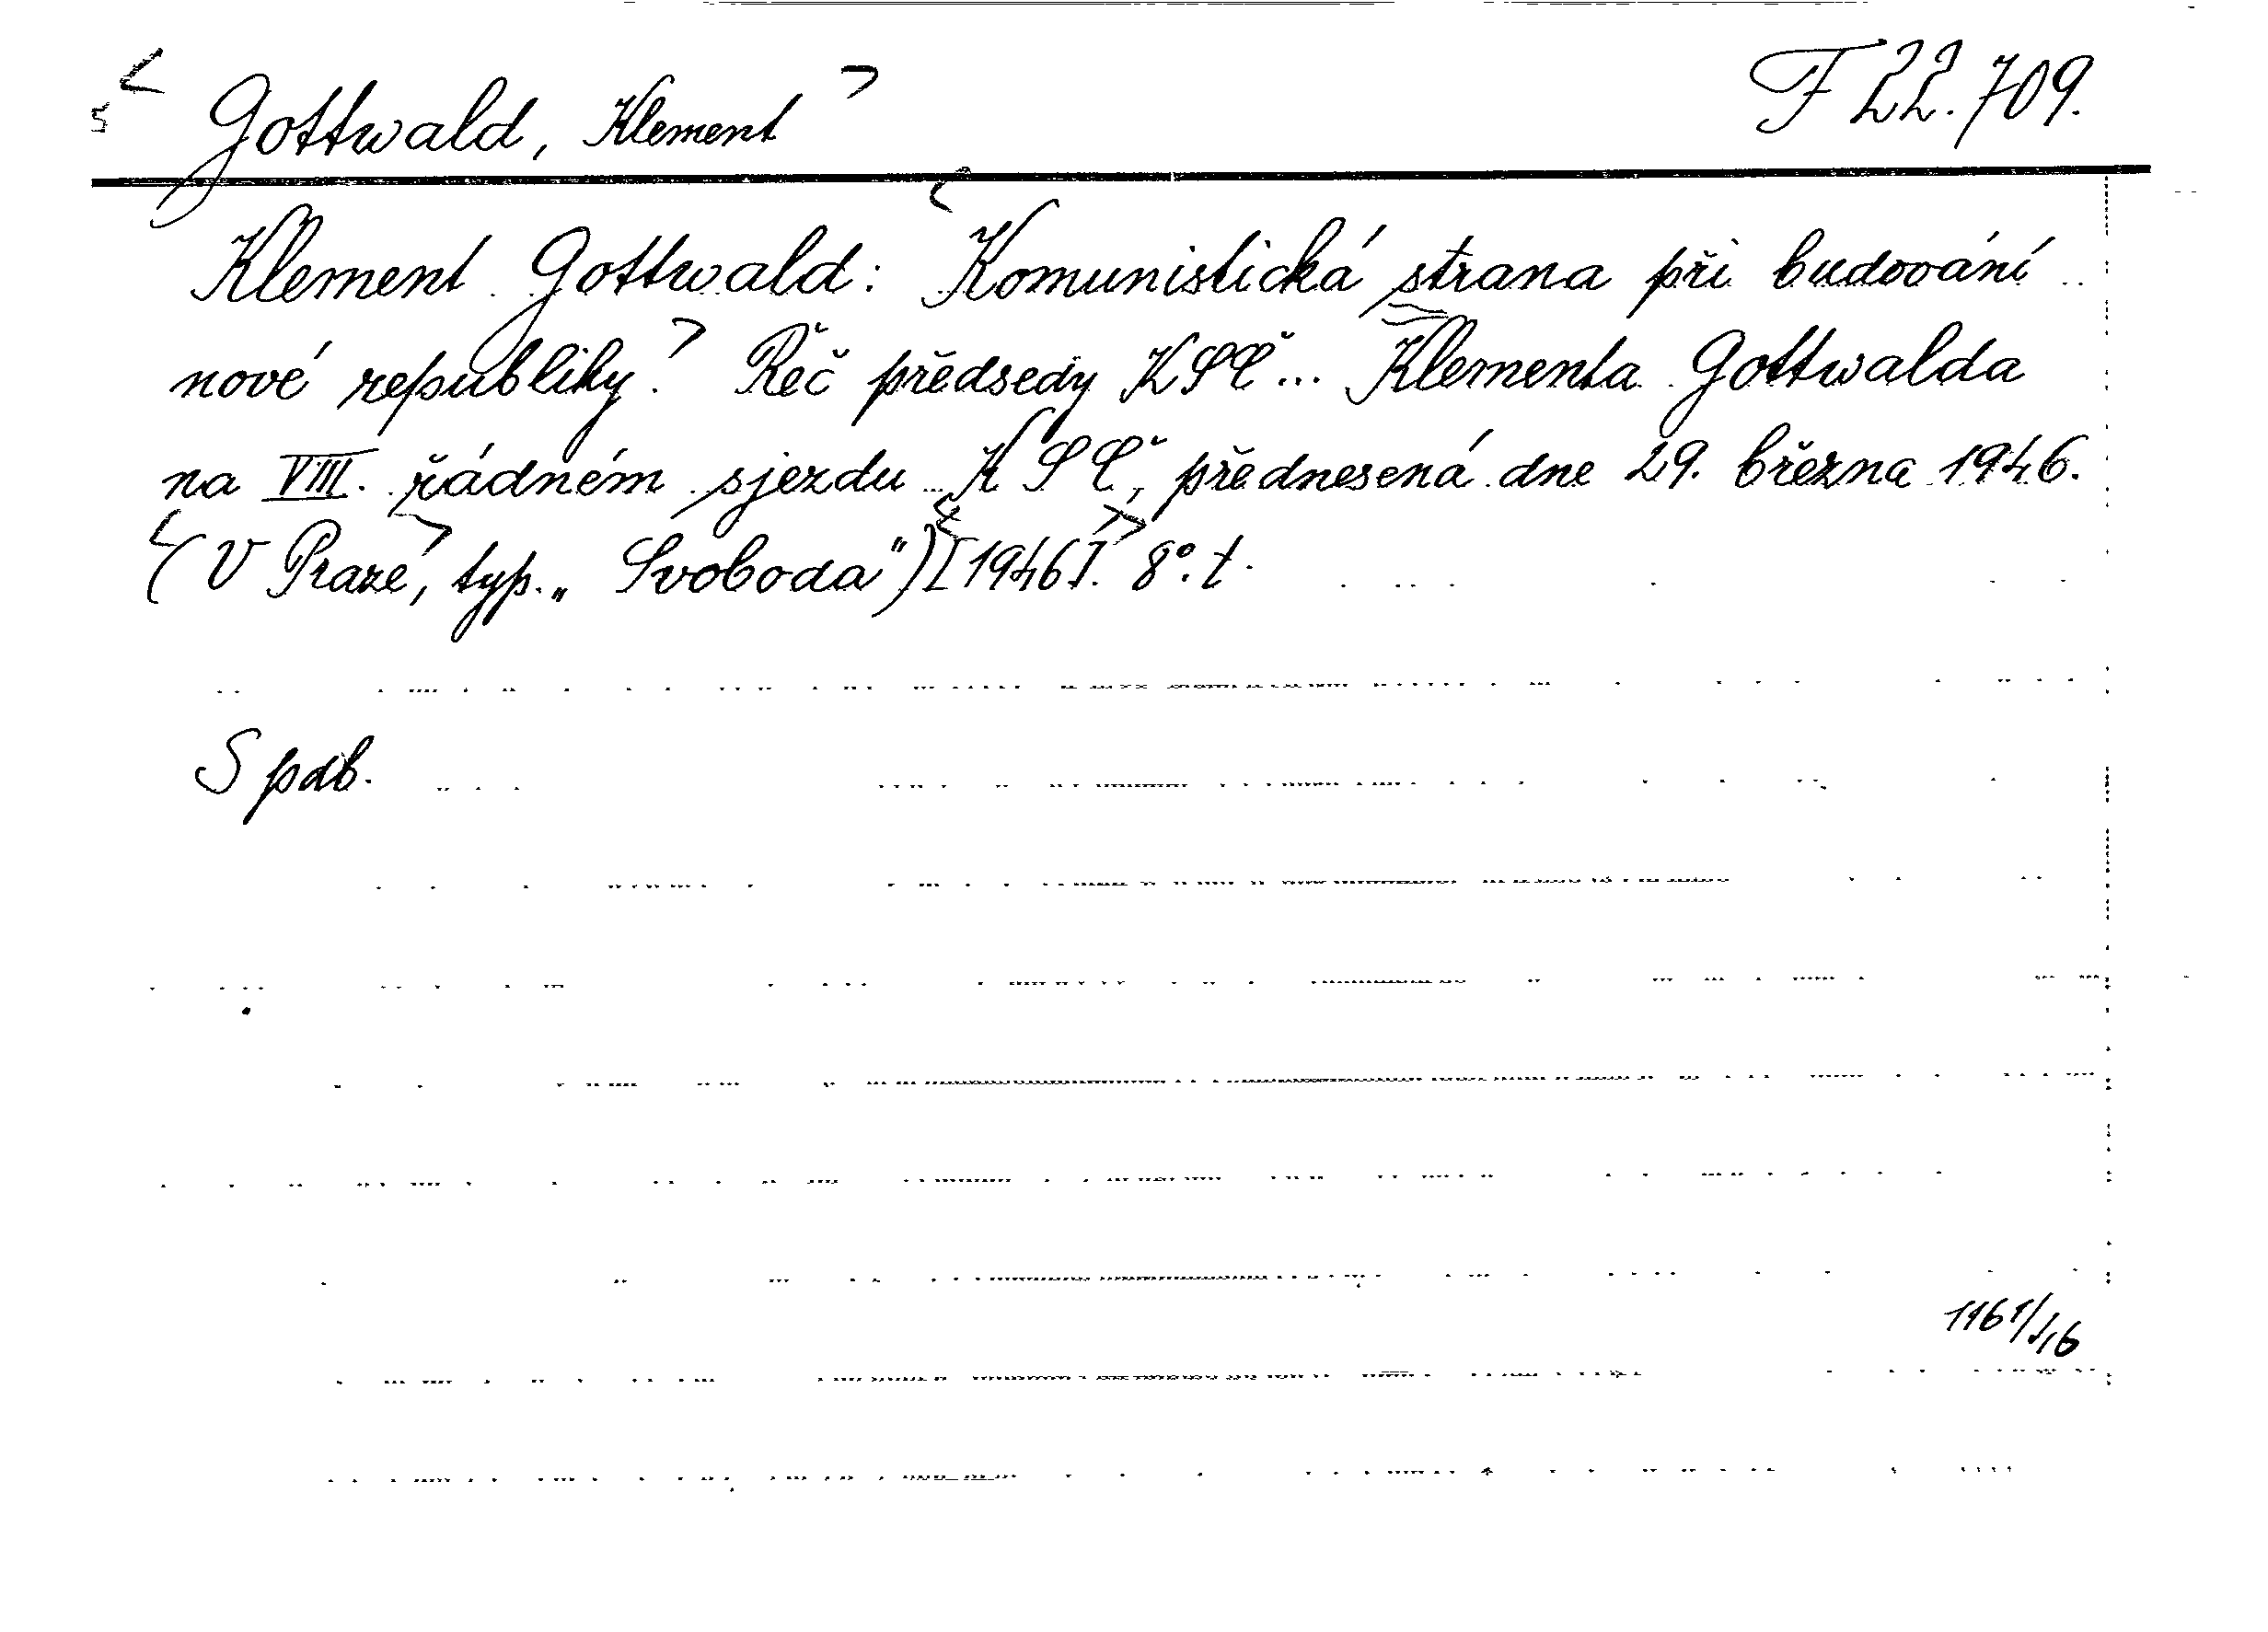 F 22.709.
Š < Gottwald, Klement >
Klement Gottwald: <Komunistická strana při budování
nové republiky.> Řeč předsedy KSČ... Klementa Gottwalda
na VIII. řádném sjezdu KSČ, přednesená dne 29. března 1946.
<(V Praze>, typ. „Svoboda") <[1946].> 8°. t.
S pdb.
1161/46